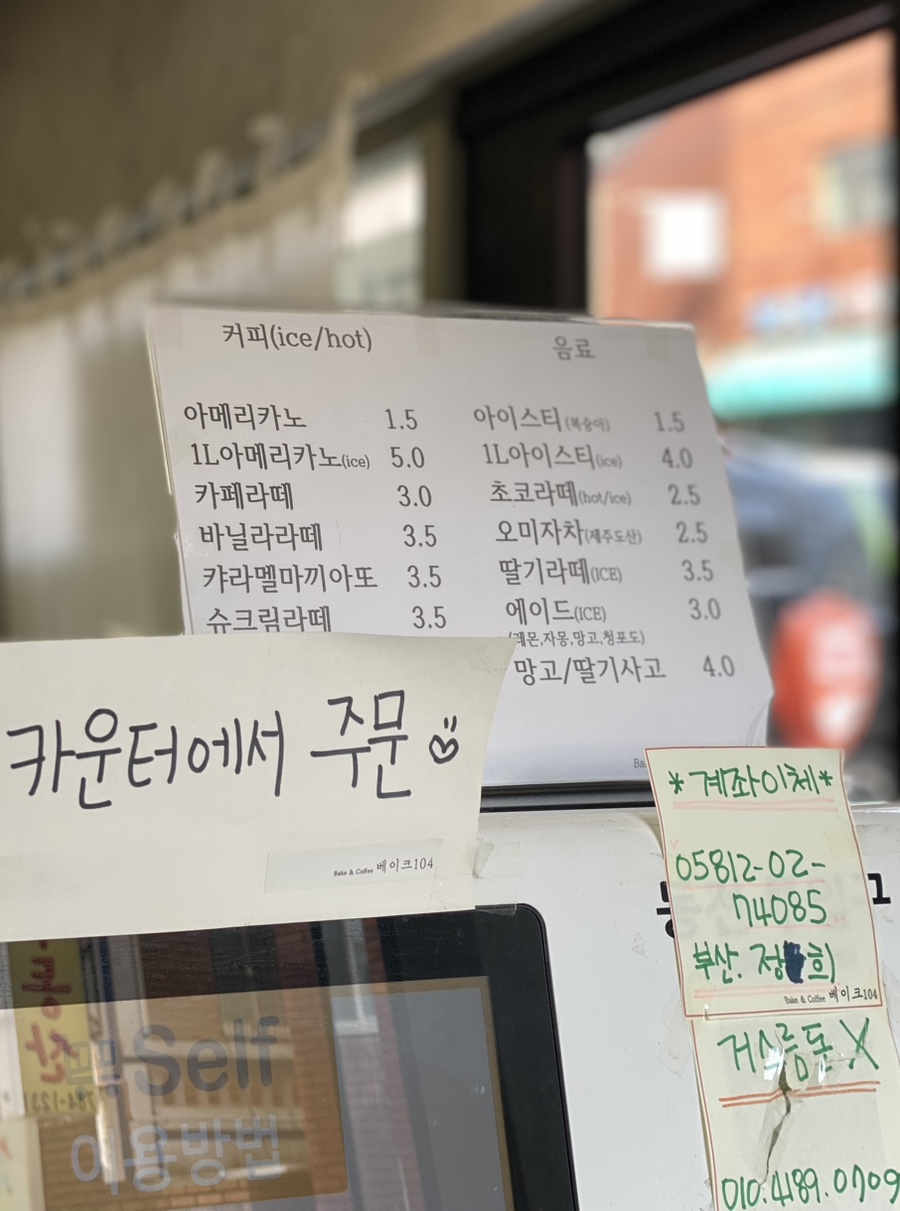 커피(ice/hot)
아메리카노 1.5
1L아메리카노(ice) 5.0
카페라떼 3.0
바닐라라떼 3.5
캬라멜마끼아또 3.5
슈크림라떼 3.5
음료
아이스티(복숭아) 1.5
1L아이스티(ice) 4.0
초코라떼(hot/ice) 2.5
오미자차(제주도산) 2.5
딸기라떼(ICE) 3.5
에이드(ICE) 3.0
(레몬,자몽,망고,청포도)
망고/딸기사고 4.0
Ba
카운터에서 주문
Bake & Coffee 베이크104
*계좌이체*
05812-02-
74085
부산. 정 희)
Bake & Coffee 베이크104
거스름돈 X
010.4189.0709
Self
이용방법